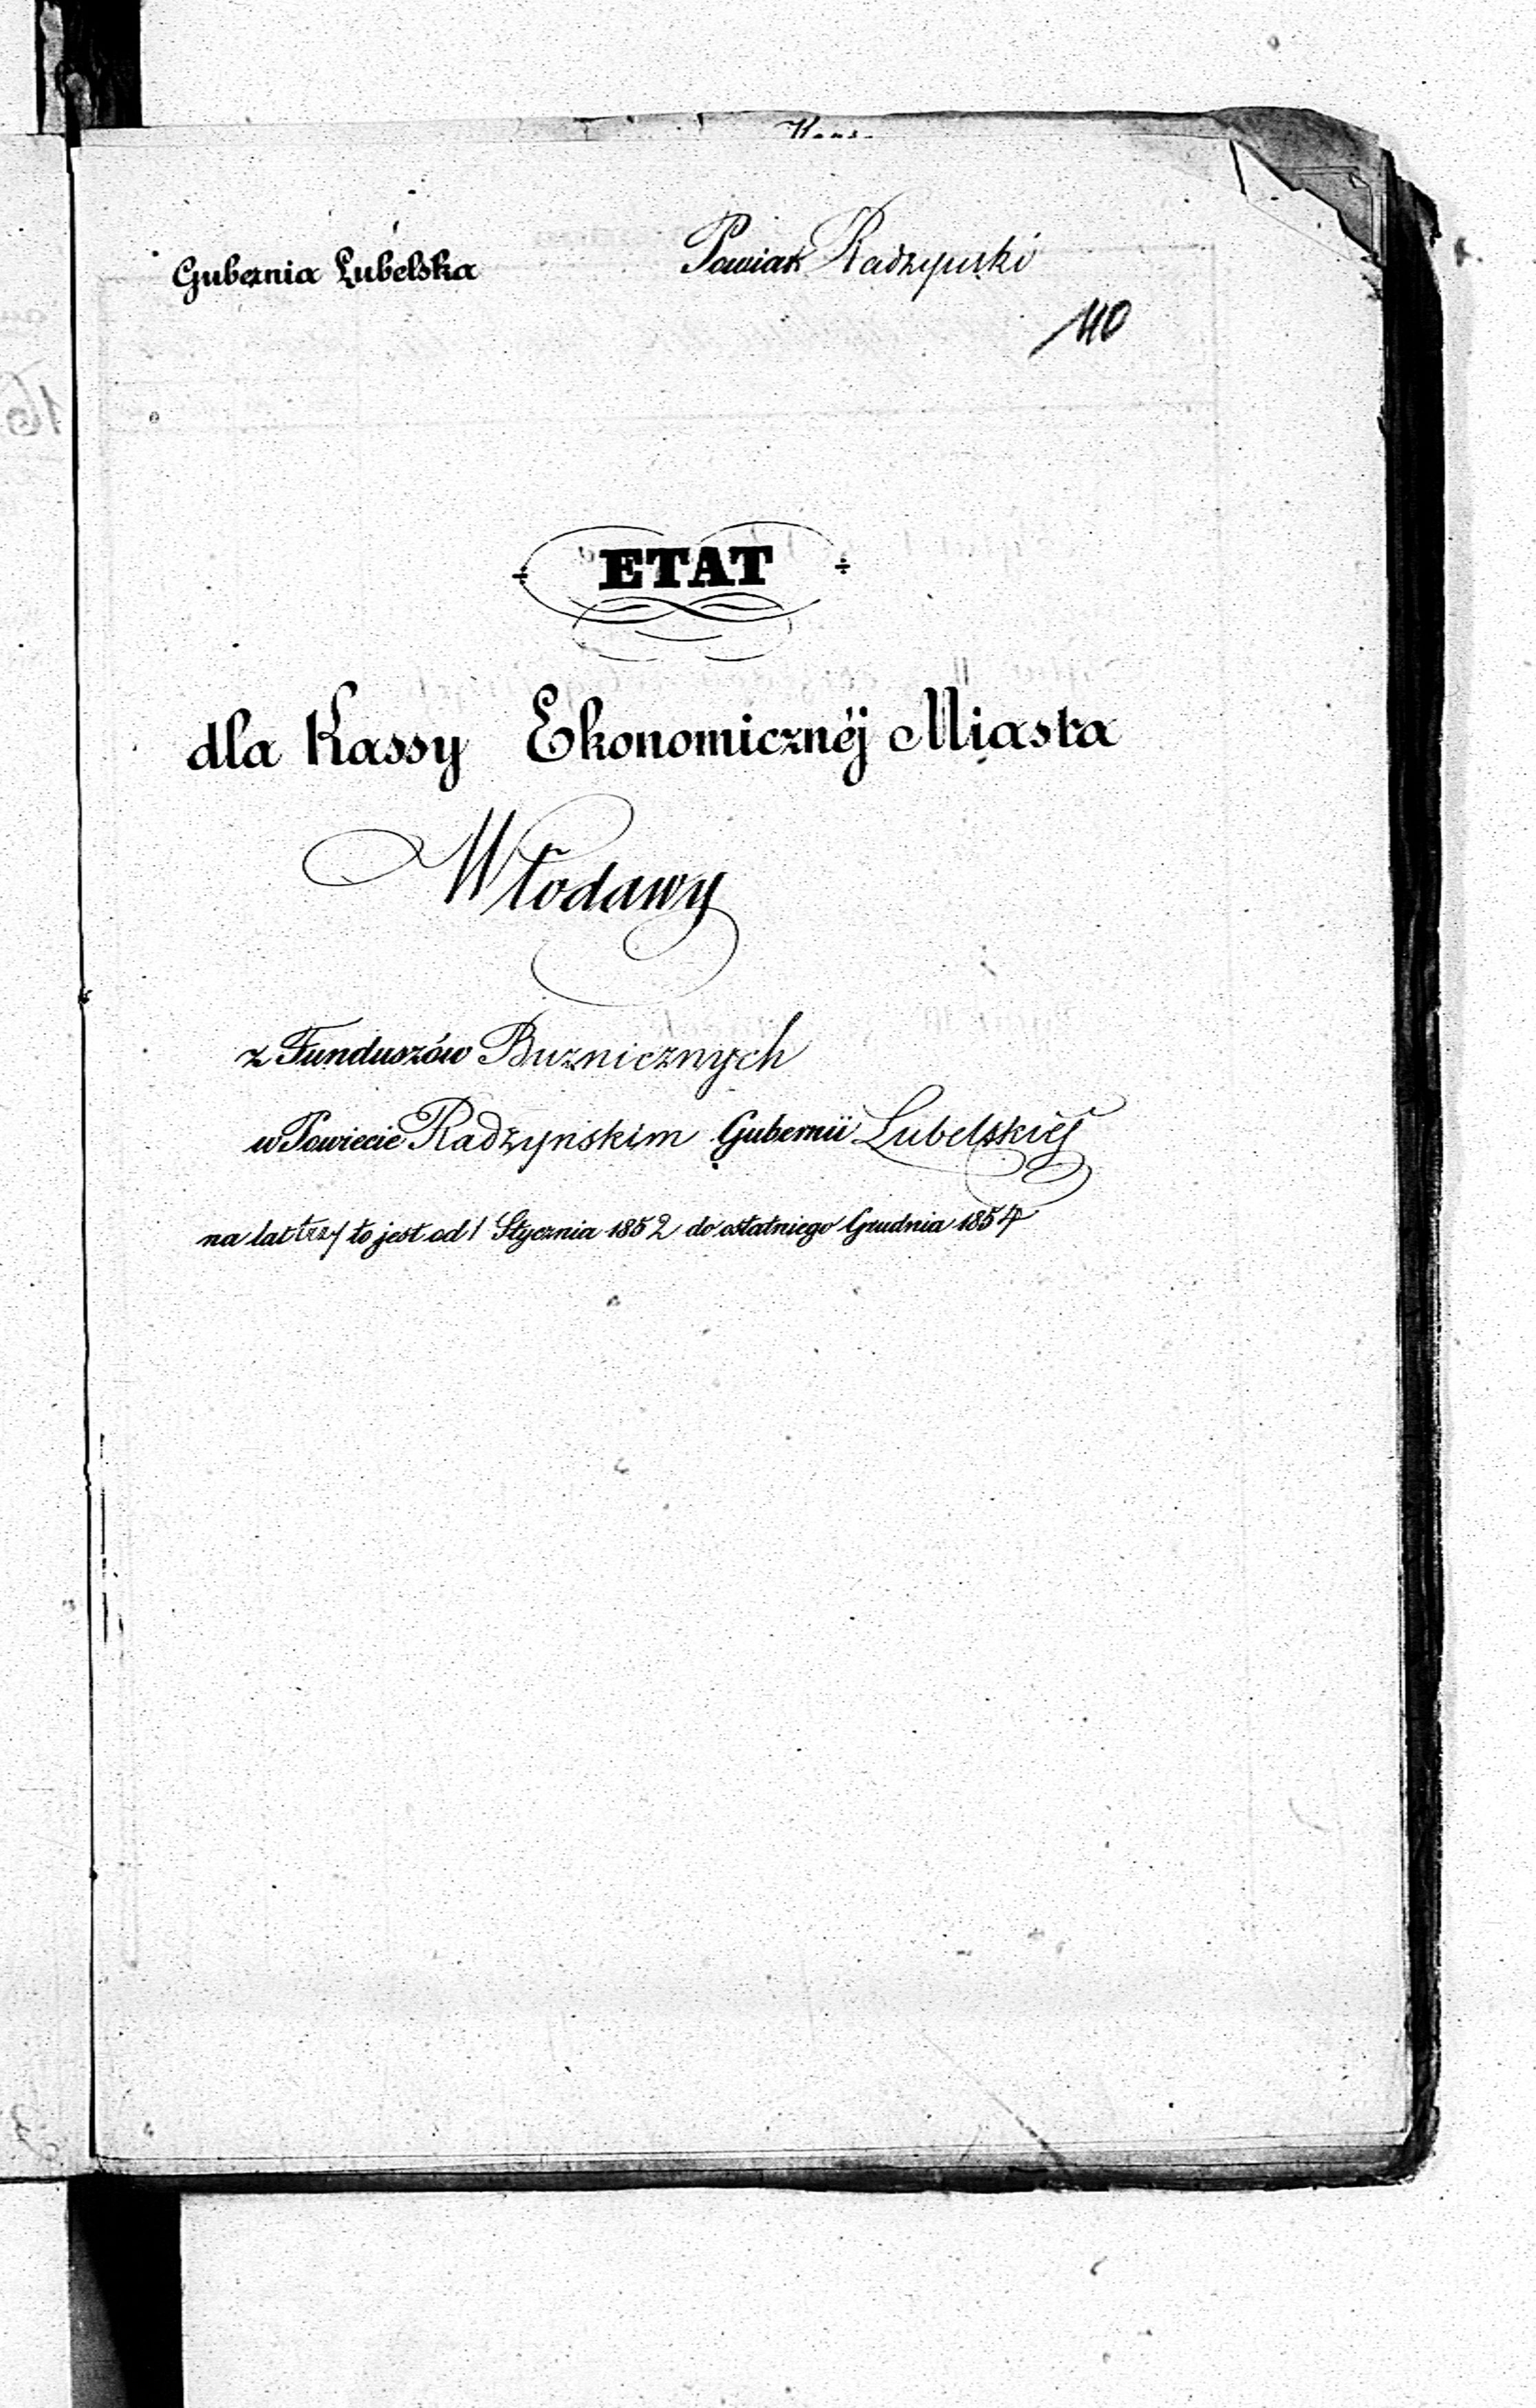 Gubernia Lubelska
Powiat Radzyński
110
ETAT
dla Kassy Ekonomicznéj Miasta
Włodawy
z Funduszów Buznicznych
w Powiecie Radzyńskim Gubernii Lubelskiéj
na lat trzy to jest od 1 Stycznia 1852 do ostatniego Grudnia 1854